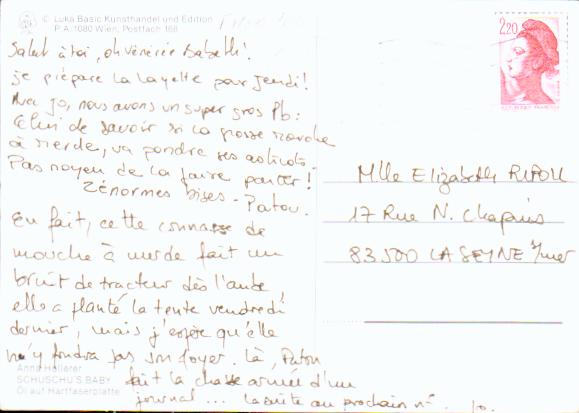 © Luka Basic Kunsthandel und Edition
P.A. 1080 Wien, Postfach 168
Salut à toi, oh vénérée Babeth!
je prépare la layette pour jeudi!
Avec Jo, nous avons un super gros Pb:
Celui de savoir si la grosse mouche
à merde, va pondre ses asticots
Pas moyen de la faire partir!
Zénormes bises - Patou.
En fait, cette connasse de
mouche à merde fait un
bruit de tracteur dès l'aube,
elle a planté la tente vendredi
dernier, mais j'espère qu'elle
n'y fondra pas son foyer. Là, Patou
fait la chasse armée d'un
journal... la suite au prochain n°. Jo.
Anna Hollerer
SCHUSCHU'S BABY
Öl auf Hartfaserplatte
2,20
Mlle Elizabeth RIPOLL
17 Rue N. Chapuis
83500 LA SEYNE s/mer